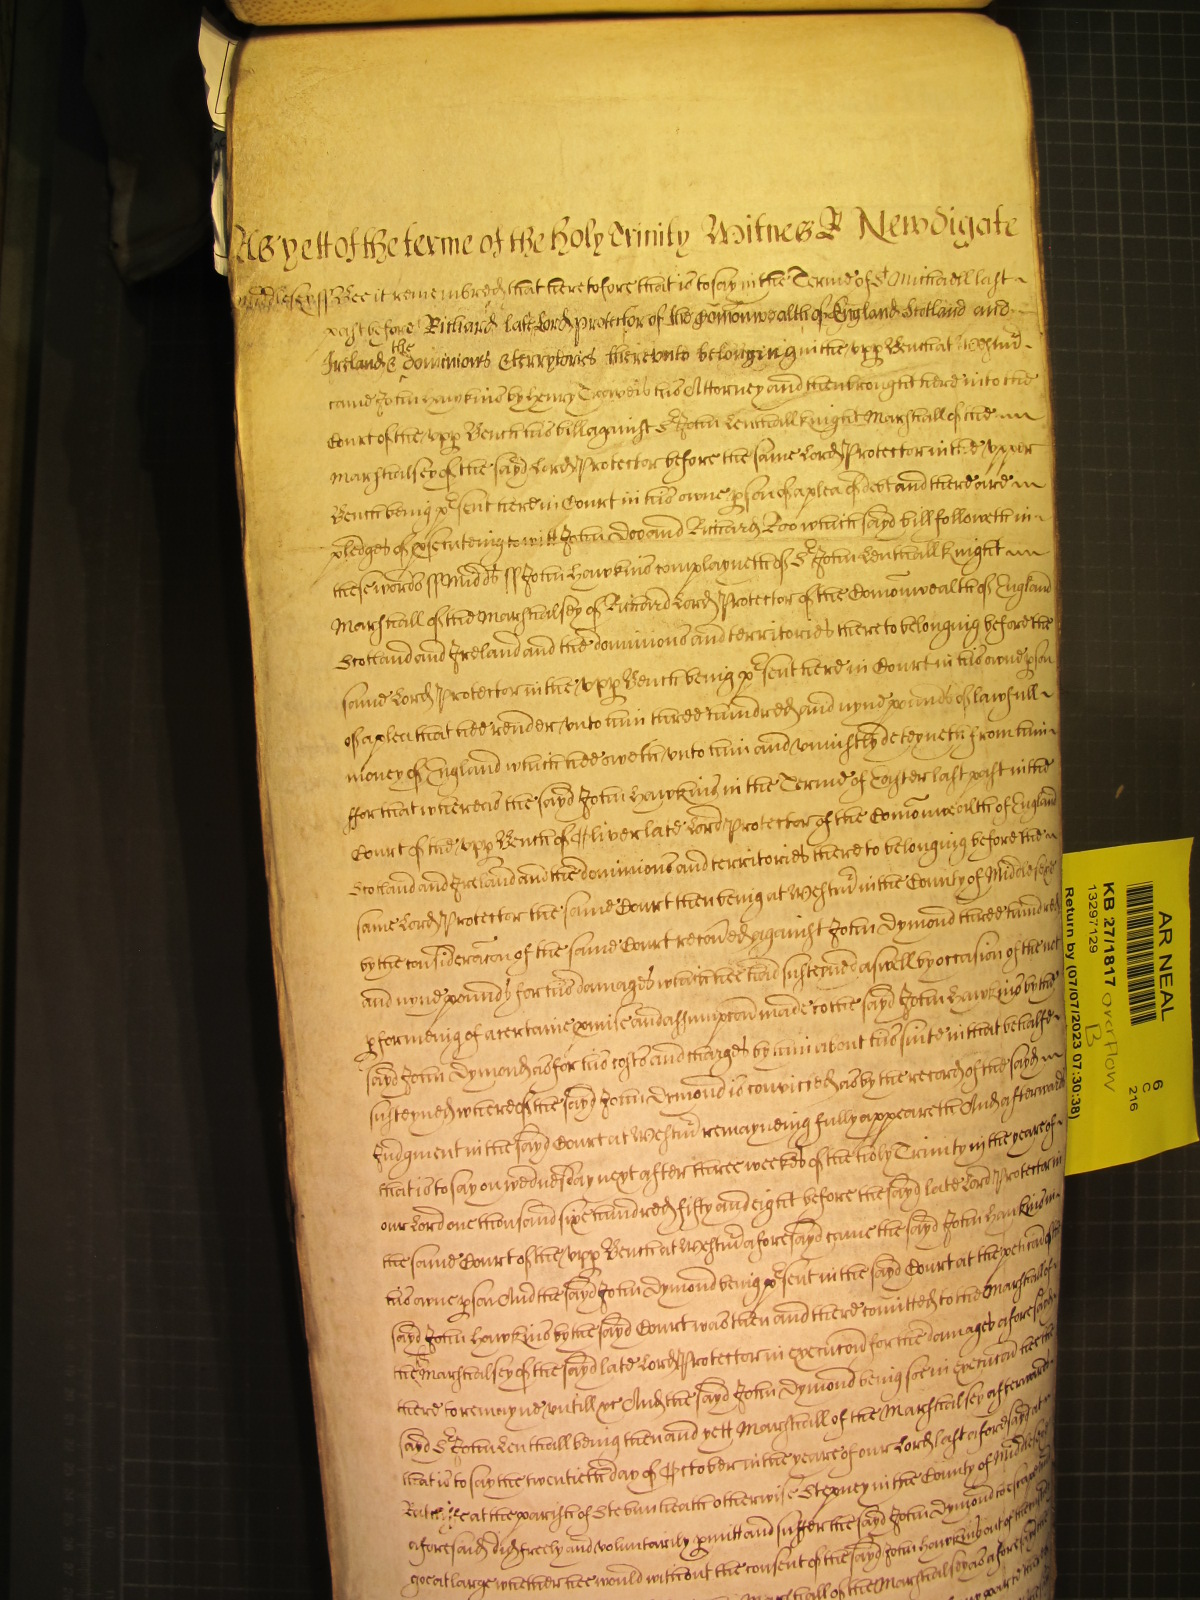 As yett of the terme of the holy Trinity Witnes R Newdigate
Middlesex ss Bee it remembred that heretofore that is to say in the Terme of St Michaell last
past before Richard late Lord Protector of the Comonwealth of England Scotland and
Ireland & the dominions & terrytories thereunto belonging in the upp Bench at Westm̃
came John Hawkins by Henry his Attorney and then brought here into the
Court of the upp Bench his bill against Sr John Lenthall knight Marshall of the
Marshalsey of the sayd Lord Protector before the same Lord Protector in the upper
Bench being psent here in Court in his owne pson of a plea of debt and there are
pledges of psecuteing to witt John Doo and Richard Roo which sayd bill followeth in
these words ss Midds ss John Hawkins complayneth of Sr John Lenthall knight
Marshall of the Marshalsey of Richard Lord Protector of the Comonwealth of England
Scotland and Ireland and the dominions and territories thereto belonging before the
same Lord Protector in the upp Bench being psent here in Court in his owne pson
of a plea that hee render unto him three hundred and nyne pounds of lawfull
money of England which hee oweth unto him and uniustly deteyneth from him
ffor that whereas the sayd John Hawkins in the Terme of Easter last past in the
Court of the upp Bench of Oliver late Lord Protector of the Comonwealth of England
Scotland and Ireland and the dominions and territories thereto belonging before the
same Lord Protector the same Court then being at Westm̃ in the County of Middlesex
by the consideracon of the same Court recoued against John Dymond three hundred
and nyne pounds for his damages which hee had susteyned aswell by occasion of the not
pformeing of a certaine pmise and assumpcon made to the sayd John Hawkins by the
sayd John Dymond as for his costs and charges by him about his suite in that behalfe
susteyned whereof the sayd John Dymond is convicted as by the record of the sayd
Judgment in the sayd Court at Westm̃ remayneing fully appeareth And afterwards
that is to say on wednesday next after three weekes of the holy Trinity in the yeare of
our Lord one thousand sixe hundred fifty and eight before the sayd late Lord Protector in
the same Court of the upp Bench at Westm̃ aforesayd came the sayd John Hawkins in
his owne pson And the sayd John Dymond being psent in the sayd Court at the peticon of the
sayd John Hawkins by the sayd Court was then and there comitted to the Marshall of
the Marshalsey of the sayd late Lord Protector in execucon for the damages aforesayd
there to remayne untill &c And the sayd John Dymond being soe in execucon hee the
sayd Sr John Lenthall being then and yett Marshall of the Marshalsey afterwards
that is to say the twentieth day of October in the yeare of our Lord last aforesayd at
Ratcliffe at the parish of Stebunheath otherwise Stepney in the County of Middlesex
aforesaid did freely and voluntarily pmitt and suffer the sayd John Dymond to escape and
goe at large whether hee would without the consent of the sayd John Hawkins
Marshall of the Marshalsey as aforesayd
AR NEAL
KB 27/1817 overflow
B
13297129
Return by (07/07/2023 07:30:38)
6
C
216